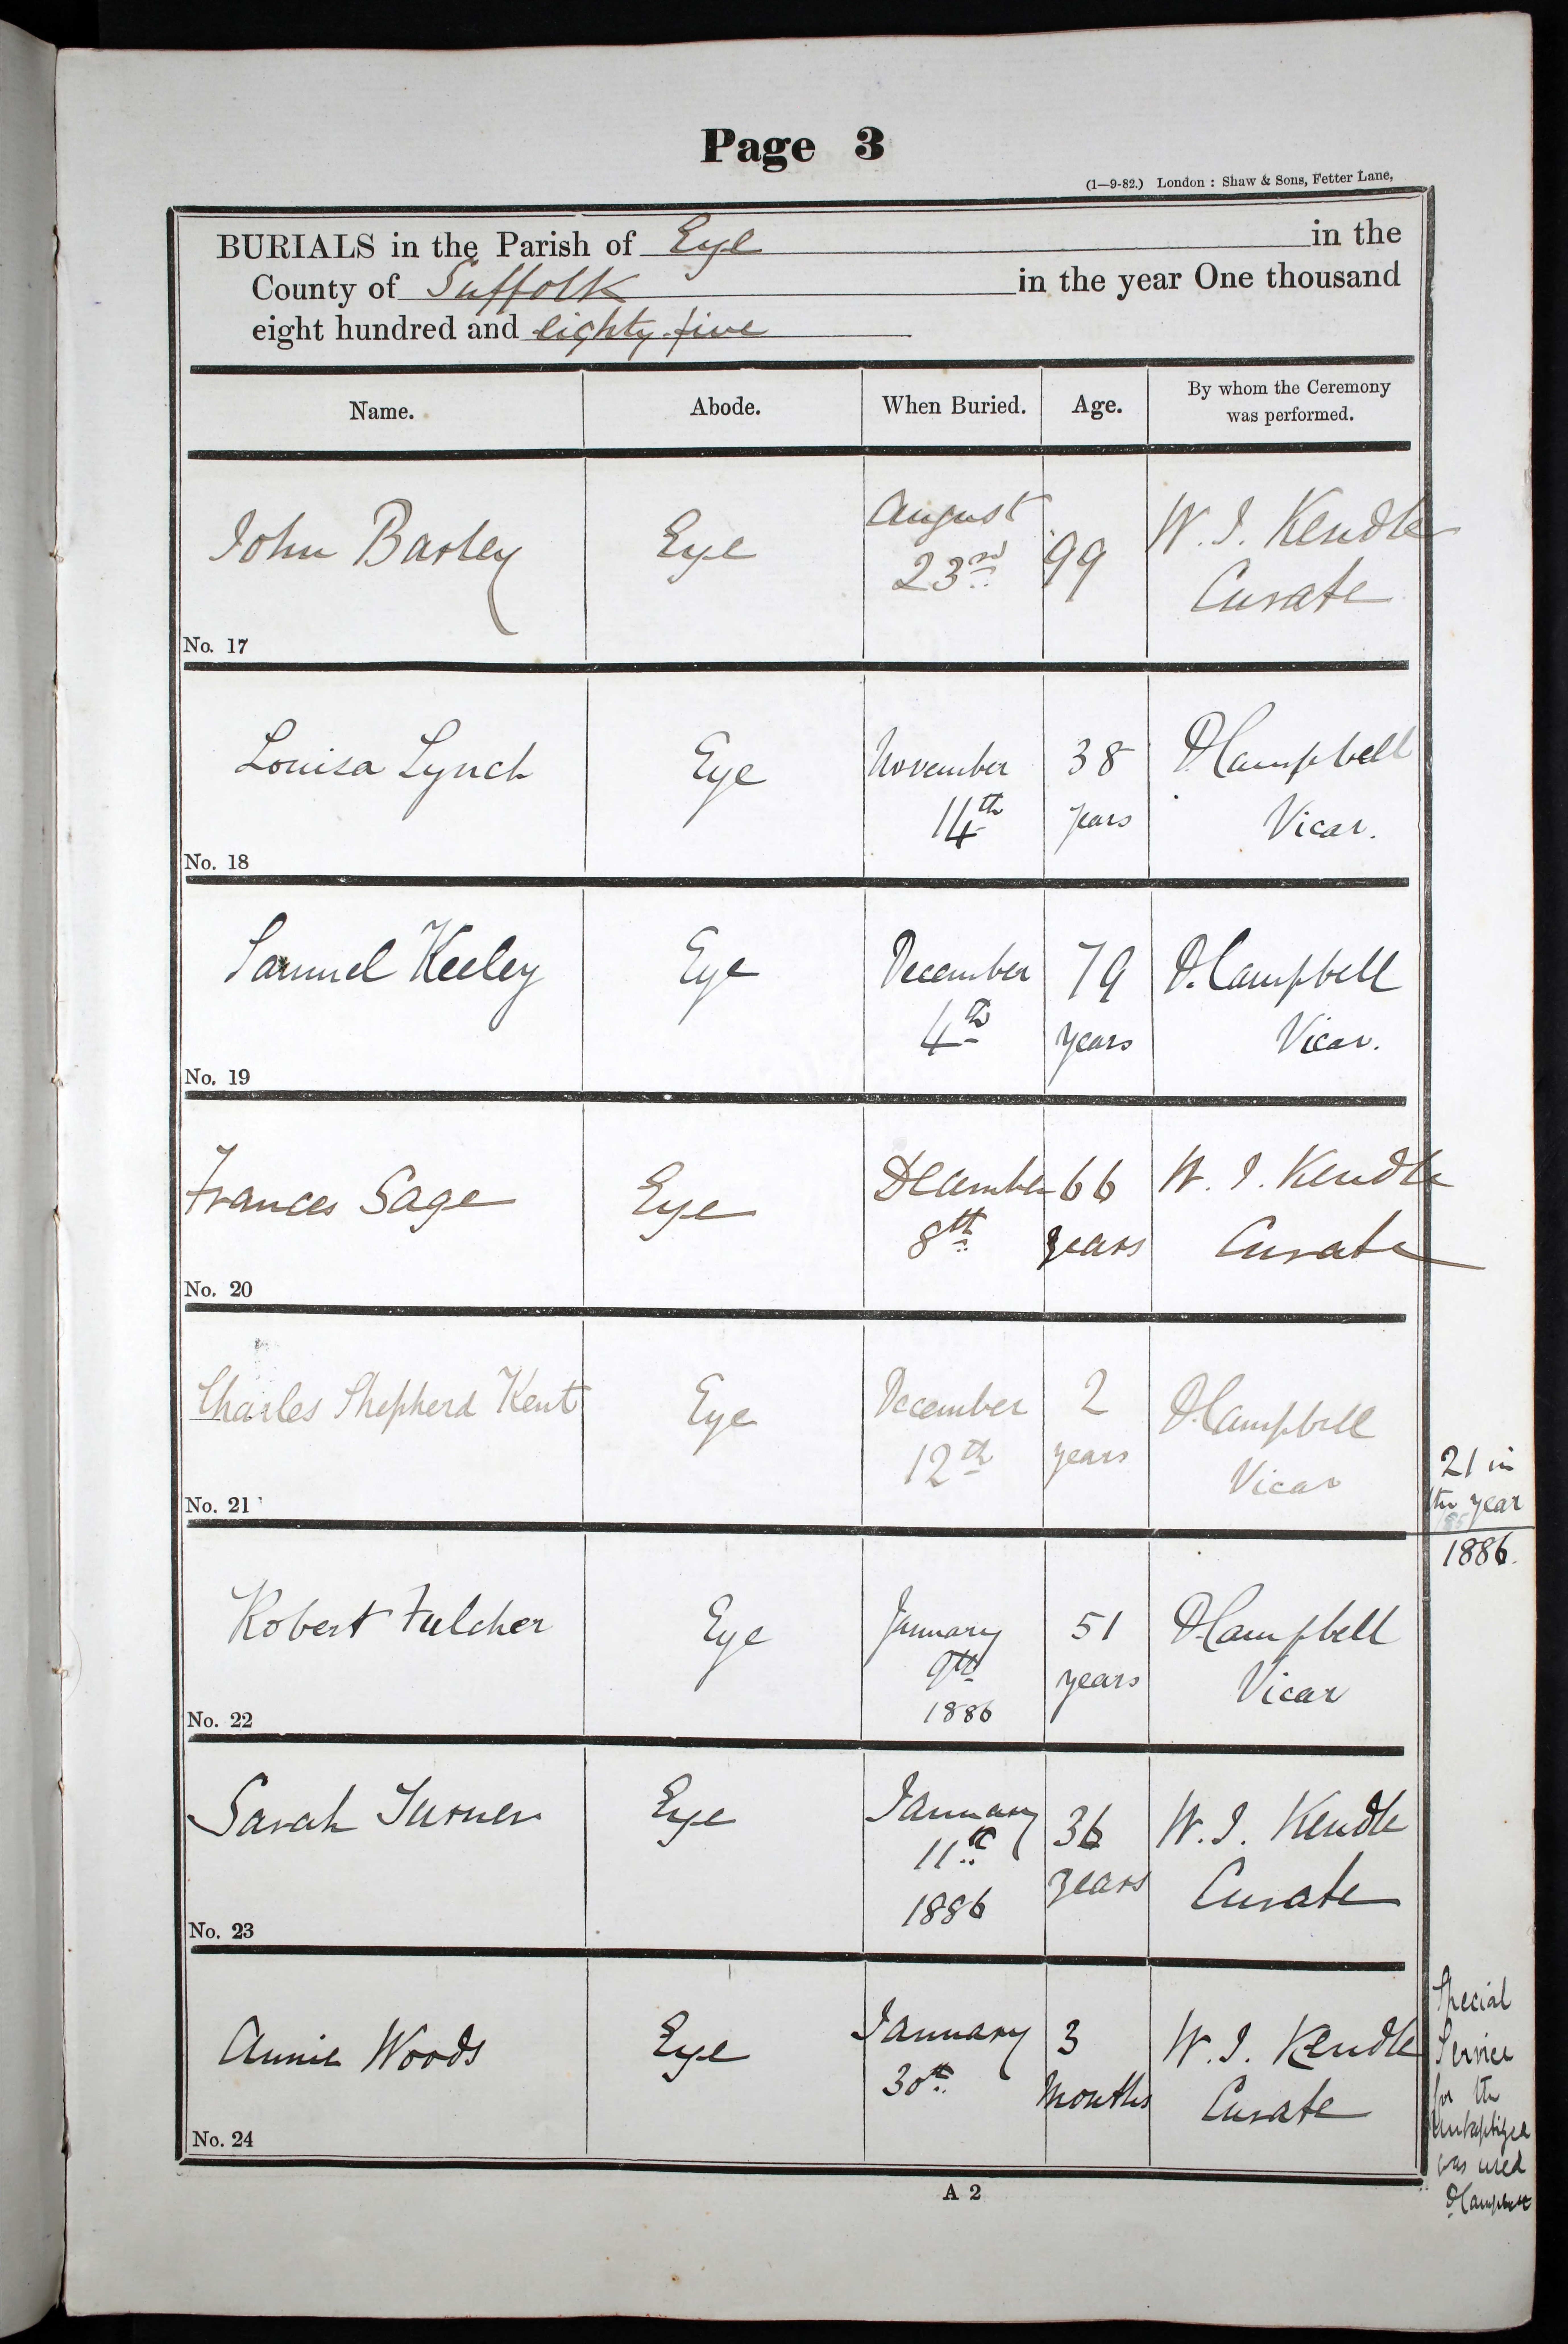 Page 3
(1—9-82.) London : Shaw & Sons, Fetter Lane,
BURIALS in the Parish of Eye in the
County of Suffolk in the year One thousand
eight hundred and eighty-five
Name. Abode. When Buried. Age. By whom the Ceremony was performed.
John Barley Eye August 99 W. I. Kendle
23rd Curate
No. 17
Louisa Lynch Eye November 38 D. Campbell
14th years Vicar.
No. 18
Samuel Keeley Eye December 79 D. Campbell
4th years Vicar.
No. 19
Frances Sage Eye December 66 W. I. Kendle
8th years Curate
No. 20
Charles Shepherd Kent Eye December 2 D. Campbell
12th years Vicar
21 in
the year
No. 21
1886.
Robert Fulcher Eye January 51 D. Campbell
9th years Vicar
1886
No. 22
Sarah Turner Eye January 36 W. I. Kendle
11th years Curate
1886
No. 23
Annie Woods Eye January 3 W. I. Kendle
30th Months Curate
No. 24
Special
Service
for the
unbaptized
was used
D. Campbell
A 2